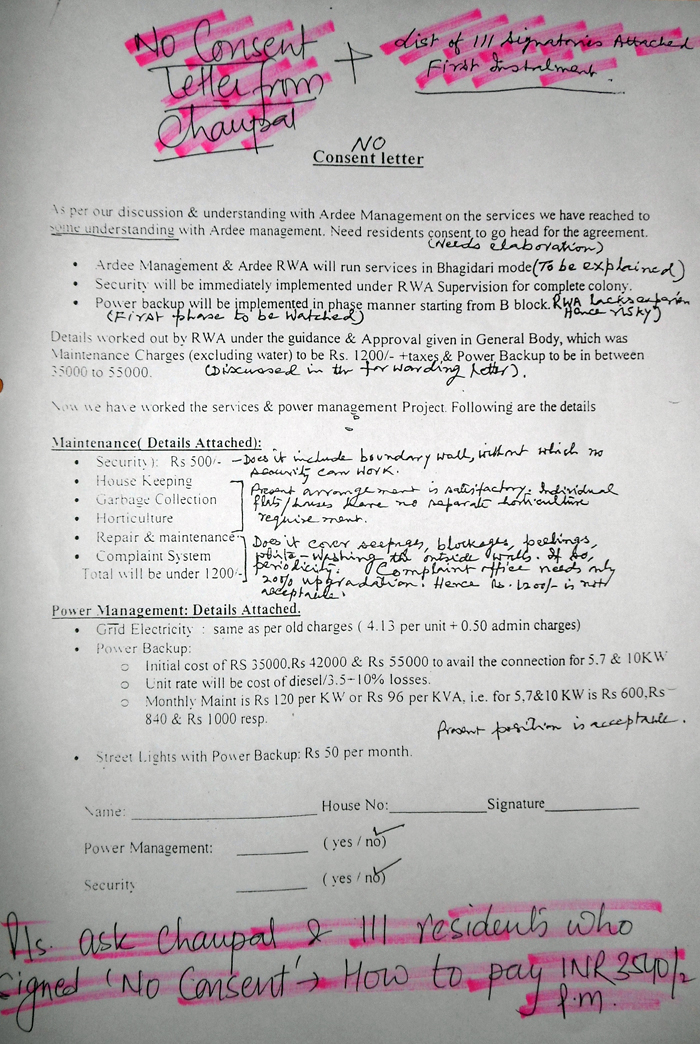 No Consent
Letter from
Chaupal
+
List of 111 Signatories Attached
First Instalment.
NO
Consent letter
As per our discussion & understanding with Ardee Management on the services we have reached to
some understanding with Ardee management. Need residents consent to go head for the agreement.
(Needs elaboration)
• Ardee Management & Ardee RWA will run services in Bhagidari mode (To be explained)
• Security will be immediately implemented under RWA Supervision for complete colony.
• Power backup will be implemented in phase manner starting from B block. RWA lacks experien
(First phase to be watched) Hence risky)
Details worked out by RWA under the guidance & Approval given in General Body, which was
Maintenance Charges (excluding water) to be Rs. 1200/- +taxes,& Power Backup to be in between
35000 to 55000. (Discussed in the forwarding letter).
Now we have worked the services & power management Project. Following are the details
Maintenance( Details Attached):
• Security): Rs 500/- – Does it include boundary wall, without which no
security can work.
• House Keeping
• Garbage Collection
• Horticulture
Present arrangement is satisfactory. Individual
flats/houses have no separate horticulture
requirement.
• Repair & maintenance
• Complaint System
Total will be under 1200/-
Does it cover seepages, blockages, peelings,
white-washing the outside walls. If so,
periodicity. Complaint office needs only
20% upgradation. Hence Rs. 1200/- is not
acceptable.
Power Management: Details Attached.
• Grid Electricity : same as per old charges ( 4.13 per unit + 0.50 admin charges)
• Power Backup:
o Initial cost of RS 35000,Rs 42000 & Rs 55000 to avail the connection for 5,7 & 10KW
o Unit rate will be cost of diesel/3.5+10% losses.
o Monthly Maint is Rs 120 per KW or Rs 96 per KVA, i.e. for 5,7&10 KW is Rs 600,Rs
840 & Rs 1000 resp.
Present position is acceptable.
• Street Lights with Power Backup: Rs 50 per month.
Name: ____________ House No:____________ Signature____________
Power Management: ________ ( yes / no)
Security ________ ( yes / no)
Pls. ask Chaupal & 111 residents who
signed 'No Consent' → How to pay INR 3540/2
p.m.